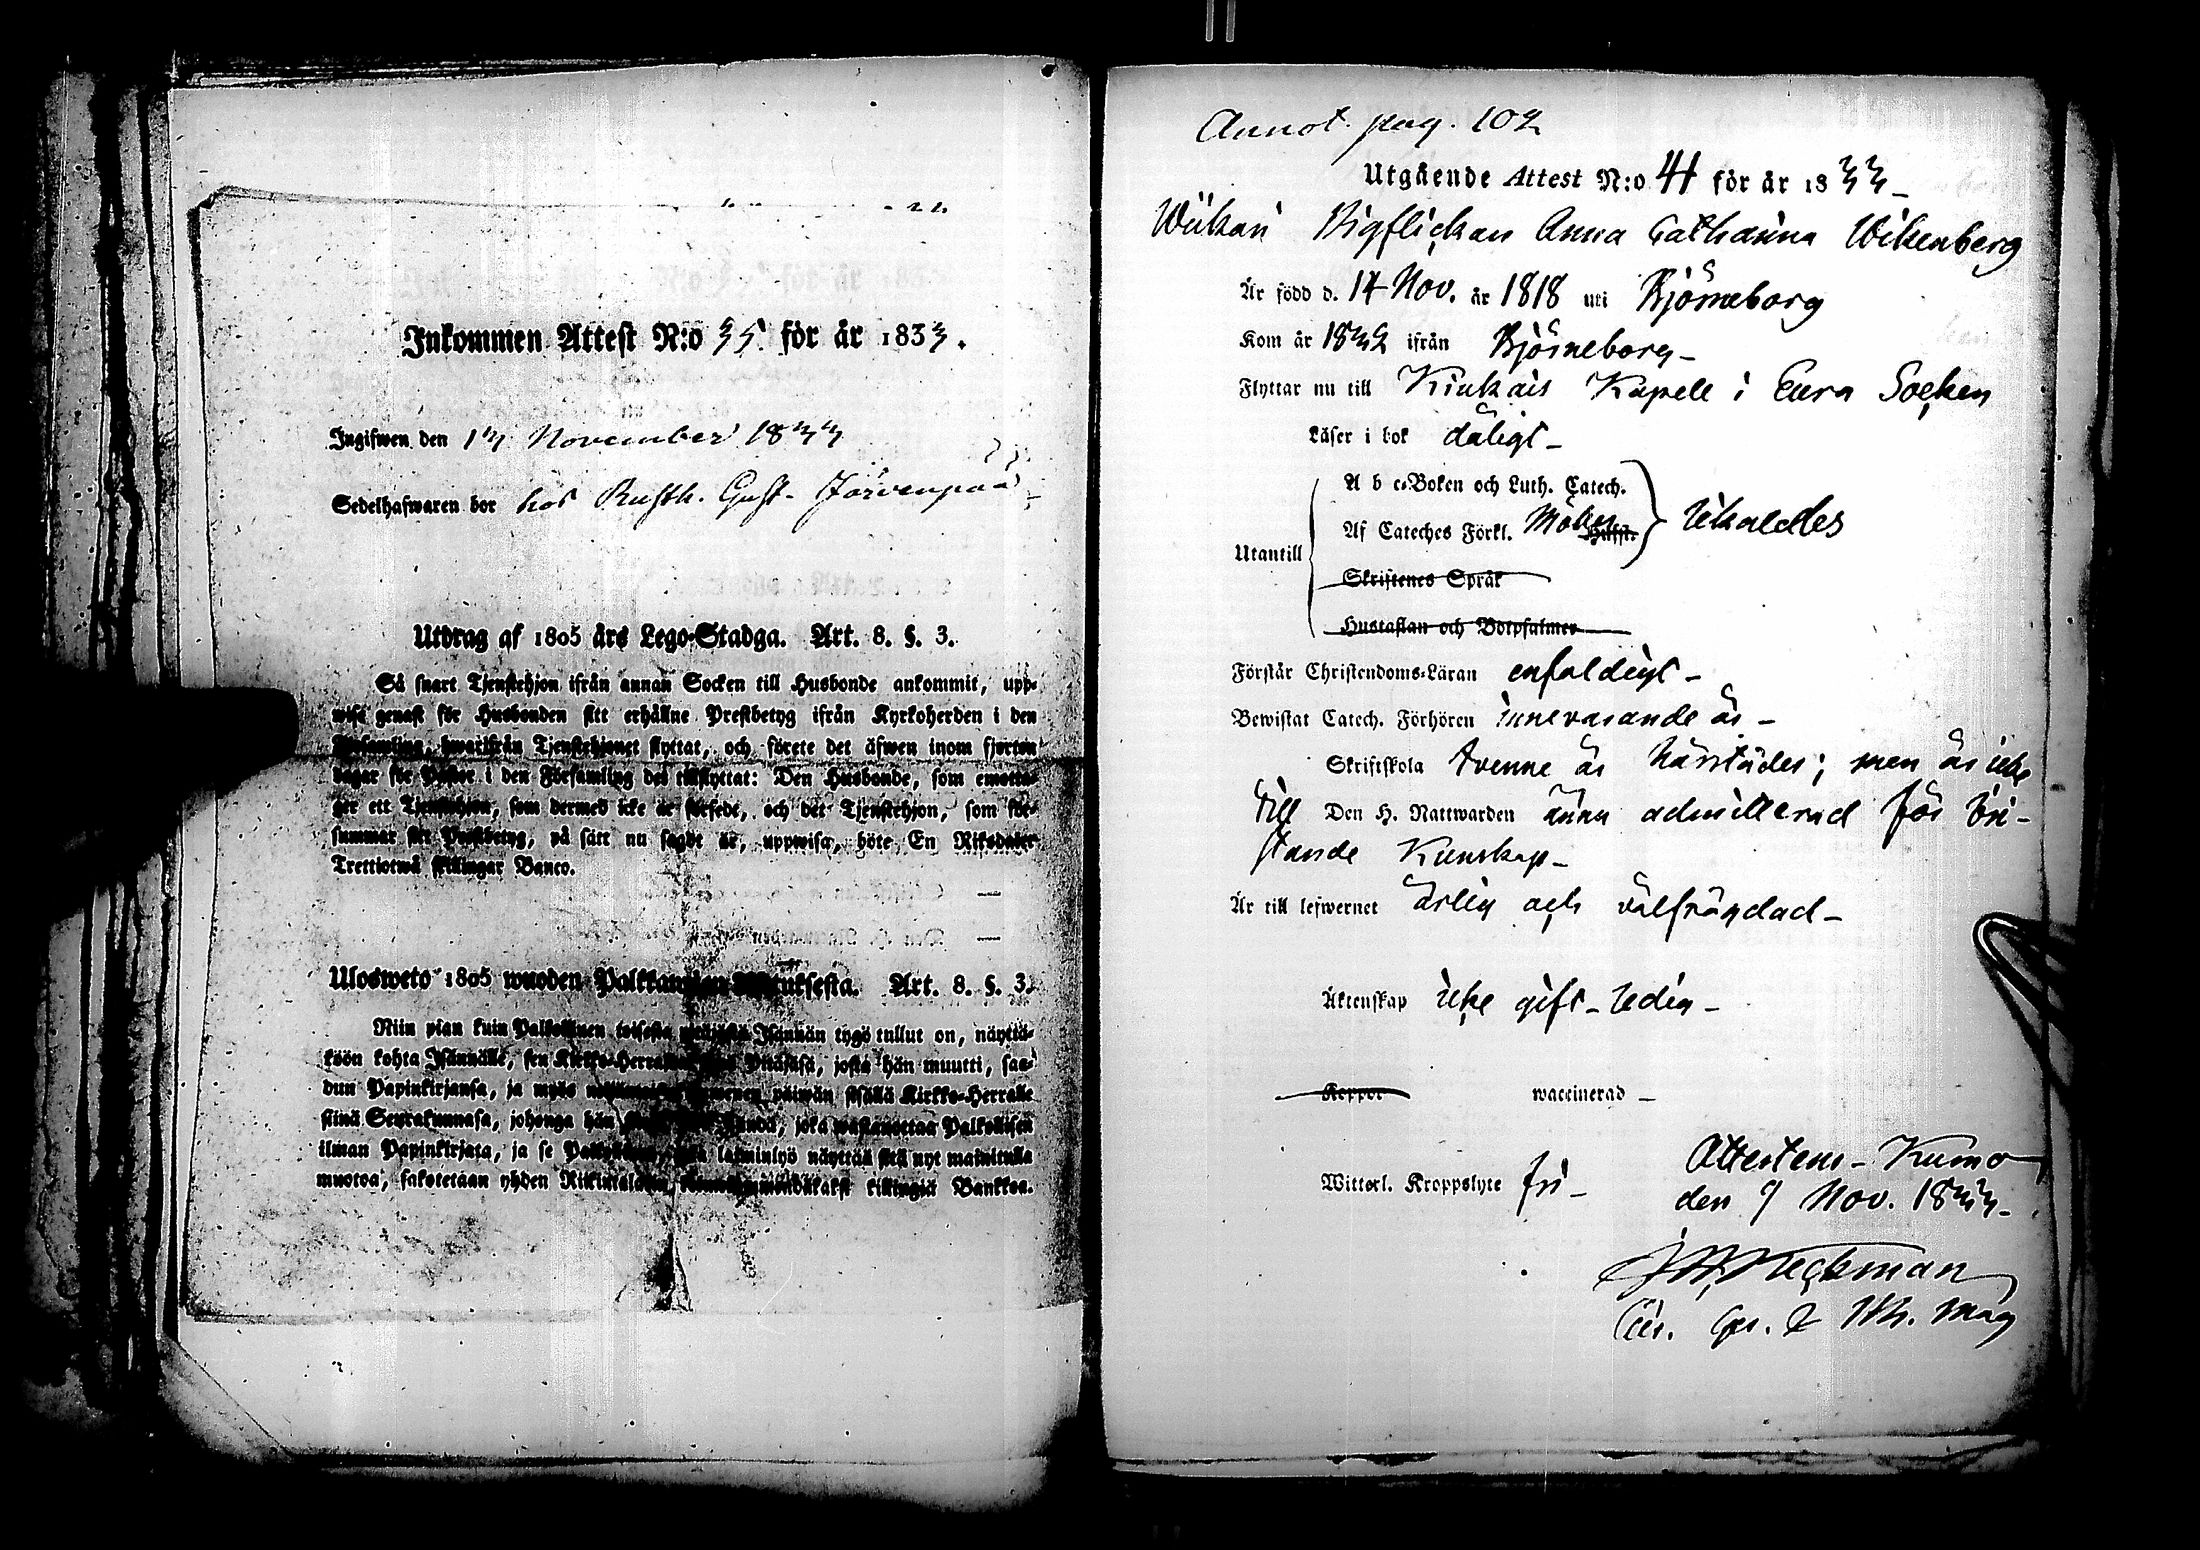 Inkommen Attest N:o 35 för år 1833.
Ingifwen den 13 November 1833
Sedelhafwaren bor hos Rusth. Gust. Järvenpää
Utdrag af 1805 års Lego-Stadga. Art. 8. §. 3.
Så snart Tjenstehjon ifrån annan Socken till Husbonde ankommit, upp-
wise genast för Husbonden sitt erhållne Prestbetyg ifrån Kyrkoherden i den
Församling, hwarifrån Tjenstehjonet flyttat, och förete det äfwen inom fjorton
dagar för Pastor i den Församling det tillflyttat: Den Husbonde, som emotta-
ger ett Tjenstehjon, som dermed icke är försedt, och det Tjenstehjon, som för-
summar sitt Prestbetyg, på sätt nu sagdt är, uppwisa, böte En Riksdaler
Trettiotwå skillingar Banco.
Ulosweto 1805 wuoden Palkkawäen Säännöksestä. Art. 8. §. 3.
Niin pian kuin Palkollinen toisesta pitäjästä Isännän tygö tullut on, näyttä-
köön kohta Isännälle, sen Kirkko-Herralta Pitäjäsä, josta hän muutti, saa-
dun Papinkirjansa, ja myös päiwän sisällä Kirkko-Herralle
siinä Seurakunnasa, johonga hän joka wastanottaa Palkollisen
ilman Papinkirjata, ja se laiminlyö näyttää sitä nyt mainitulla
muotoa, sakotetaan yhden Riikintalarin killingiä Bankkoa.
Annot. pag. 102
Utgående Attest N:o 41 för år 1833
Pigflickan Anna Catharina Wikenberg
Är född d. 14 Nov. år 1818 uti Björneborg
Kom år 1832 ifrån Björneborg
Flyttar nu till Kiukais Kapell i Eura Socken
Läser i bok dåligt
A b c-Boken och Luth. Catech.
Af Cateches Förkl. Hälft.
Utantill
Skriftenes Språk
Hustaflan och Botpsalmer
Förstår Christendoms-Läran enfaldigt
Bewistat Catech. Förhören innevarande år
Skriftskola tvenne år härstädes; men är icke
till Den H. Nattwarden ännu admitterad för bri-
stande Kunskap
Är till lefwernet ärlig och välfrägdad
Äktenskap icke gift - ledig
Koppor waccinerad
Witterl. Kroppslyte fri
Attesteras - Kumo
den 9 Nov. 1833